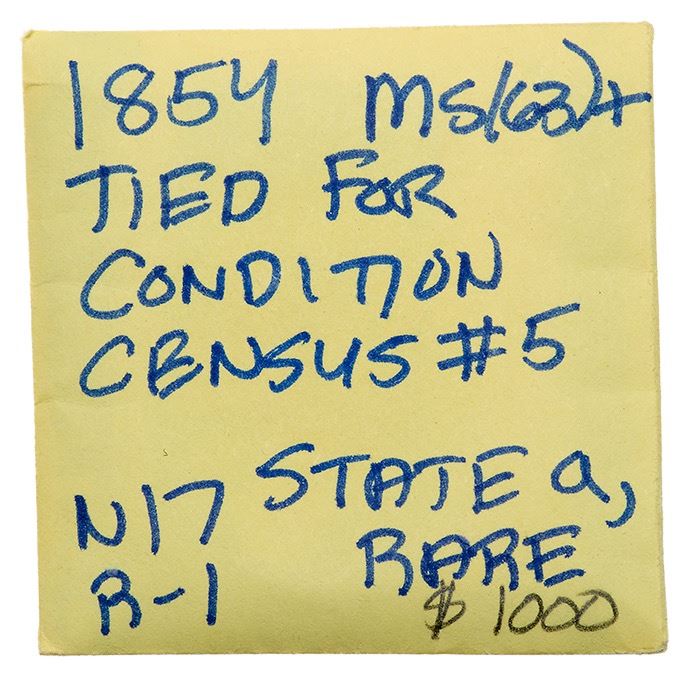 1854 MS(63)+
TIED FOR
CONDITION
CENSUS #5
N17 STATE a,
R-1 RARE
$1000